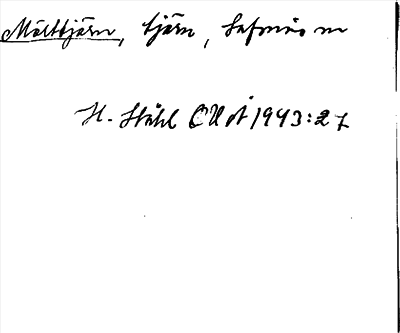 Mårtbjärn, tjärn, Safsnäs sn
H. Ståhl OUÅ 1943:27